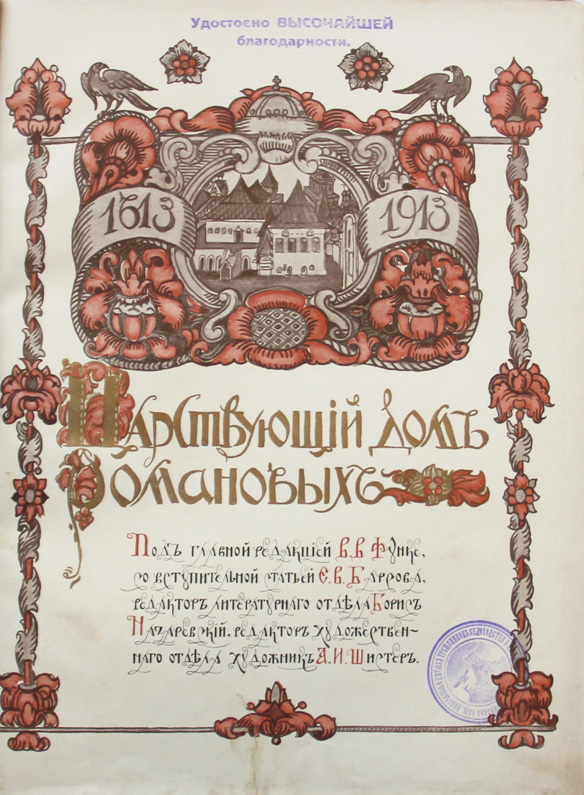 Удостоено ВЫСОЧАЙШЕЙ
благодарности.
1613
1913
Царствующій домъ
Романовыхъ
Подъ главной редакціей В. В. Функе,
со вступительной статьей Е. В. Барсова.
редакторъ литературнаго отдѣла Борисъ
Назаревскій. редакторъ художествен-
наго отдѣла художникъ А. И.